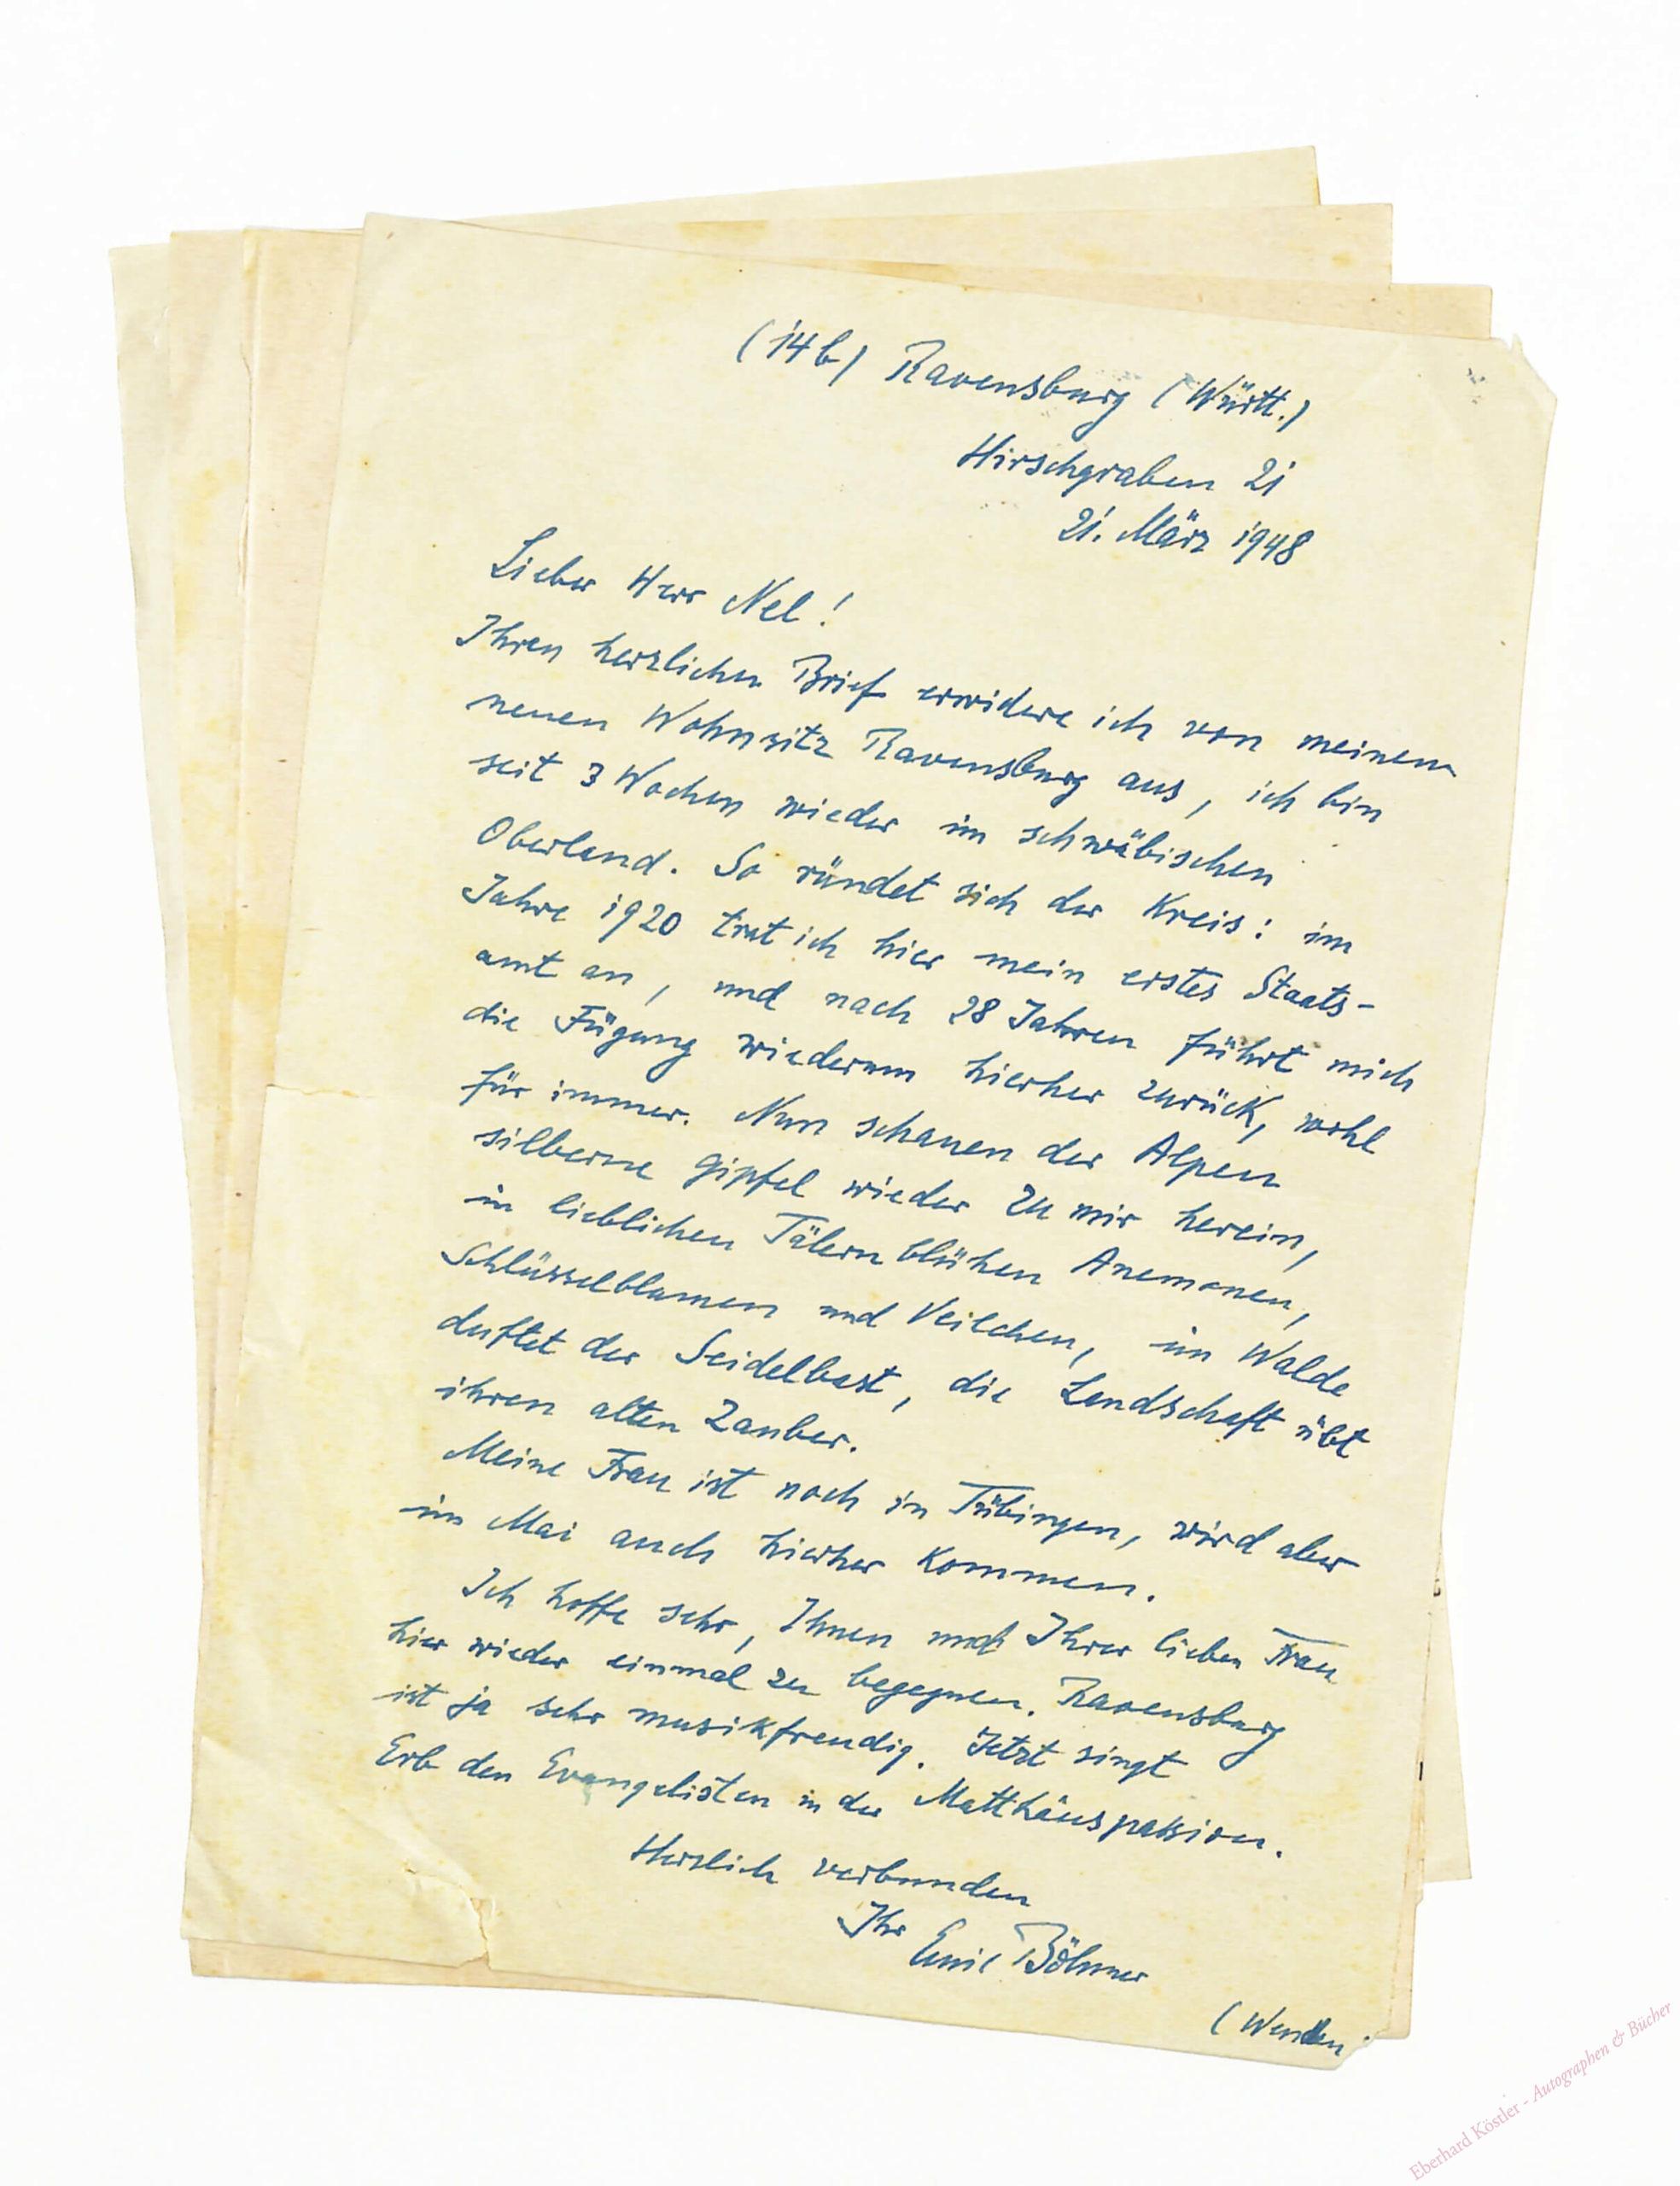 (14b) Ravensburg (Württ.)
Hirschgraben 21
21. März 1948
Lieber Herr Nel!
Ihren herzlichen Brief erwidere ich von meinem
neuen Wohnsitz Ravensburg aus, ich bin
seit 3 Wochen wieder im schwäbischen
Oberland. So ründet sich der Kreis: im
Jahre 1920 trat ich hier mein erstes Staats-
amt an, und nach 28 Jahren führt mich
die Fügung wiederum hierher zurück, wohl
für immer. Nun schauen der Alpen
silberne Gipfel wieder zu mir herein,
in lieblichen Tälern blühen Anemonen,
Schlüsselblumen und Veilchen, im Walde
duftet der Seidelbast, die Landschaft übt
ihren alten Zauber.
Meine Frau ist noch in Tübingen, wird aber
im Mai auch hierher kommen.
Ich hoffe sehr, Ihnen und Ihrer lieben Frau
hier wieder einmal zu begegnen. Ravensburg
ist ja sehr musikfreudig. Jetzt singt
Erb den Evangelisten in der Matthäuspassion.
Herzlich verbunden
Ihr
Emil Böhmer
(Wenden
Eberhard Köstler - Autographen & Bücher